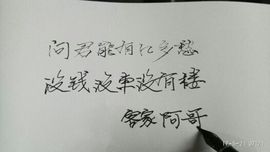 问君能有几多愁
没钱没车没有楼
客家阿哥